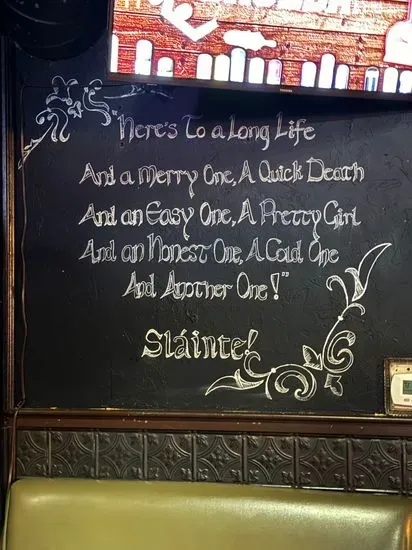 "Here's To a Long Life
And a Merry One, A Quick Death
And an Easy One, A Pretty Girl
And an Honest One, A Cold One
And Another One!"
Sláinte!